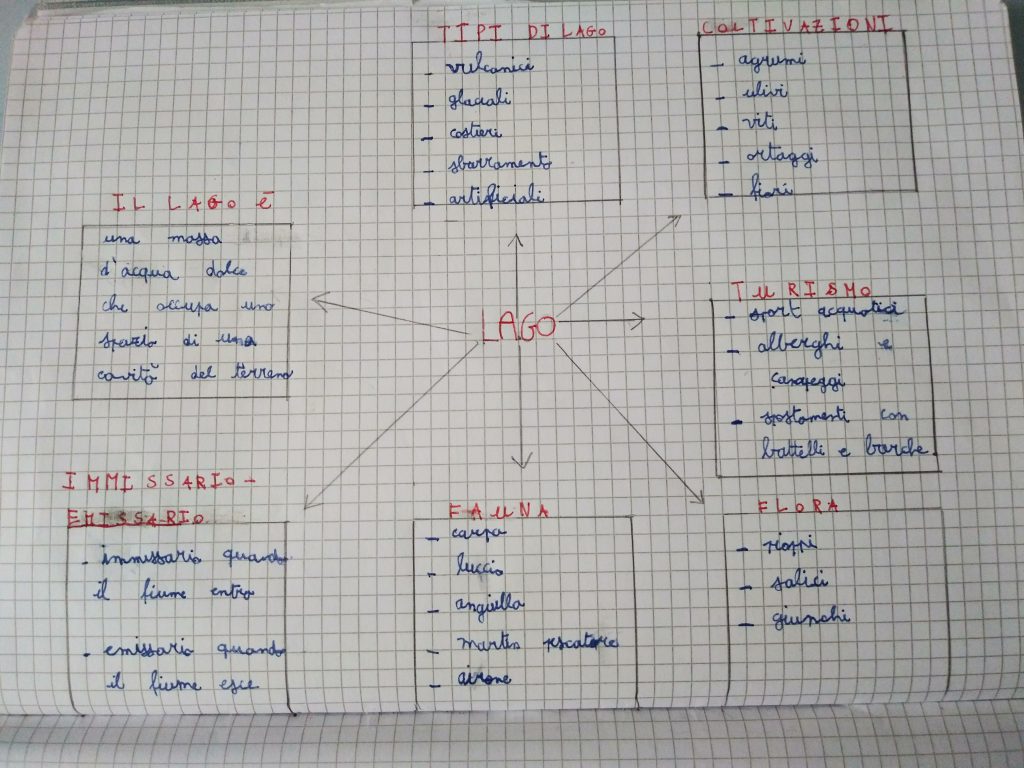 TIPI DI LAGO
- vulcanici
- glaciali
- costieri
- sbarramento
- artificiali
COLTIVAZIONI
- agrumi
- ulivi
- viti
- ortaggi
- fiori
IL LAGO È
una massa
d'acqua dolce
che occupa uno
spazio di una
cavità del terreno
LAGO
TURISMO
- sport acquatici
- alberghi e
campeggi
- spostamenti con
battelli e barche
IMMISSARIO -
EMISSARIO
- immissario quando
il fiume entra
- emissario quando
il fiume esce
FAUNA
- carpa
- luccio
- anguilla
- martin pescatore
- airone
FLORA
- pioppi
- salici
- giunchi